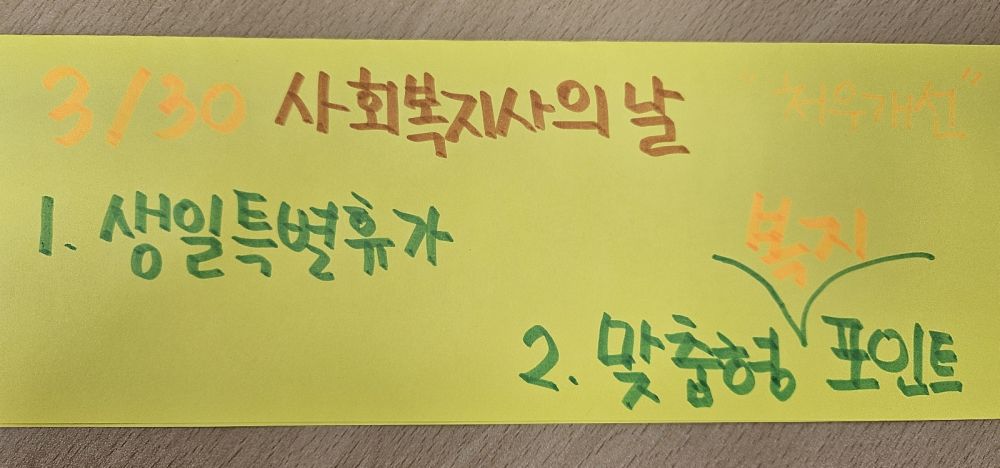 3/30 사회복지사의 날 "처우개선"
1. 생일특별휴가
2. 맞춤형 복지 포인트